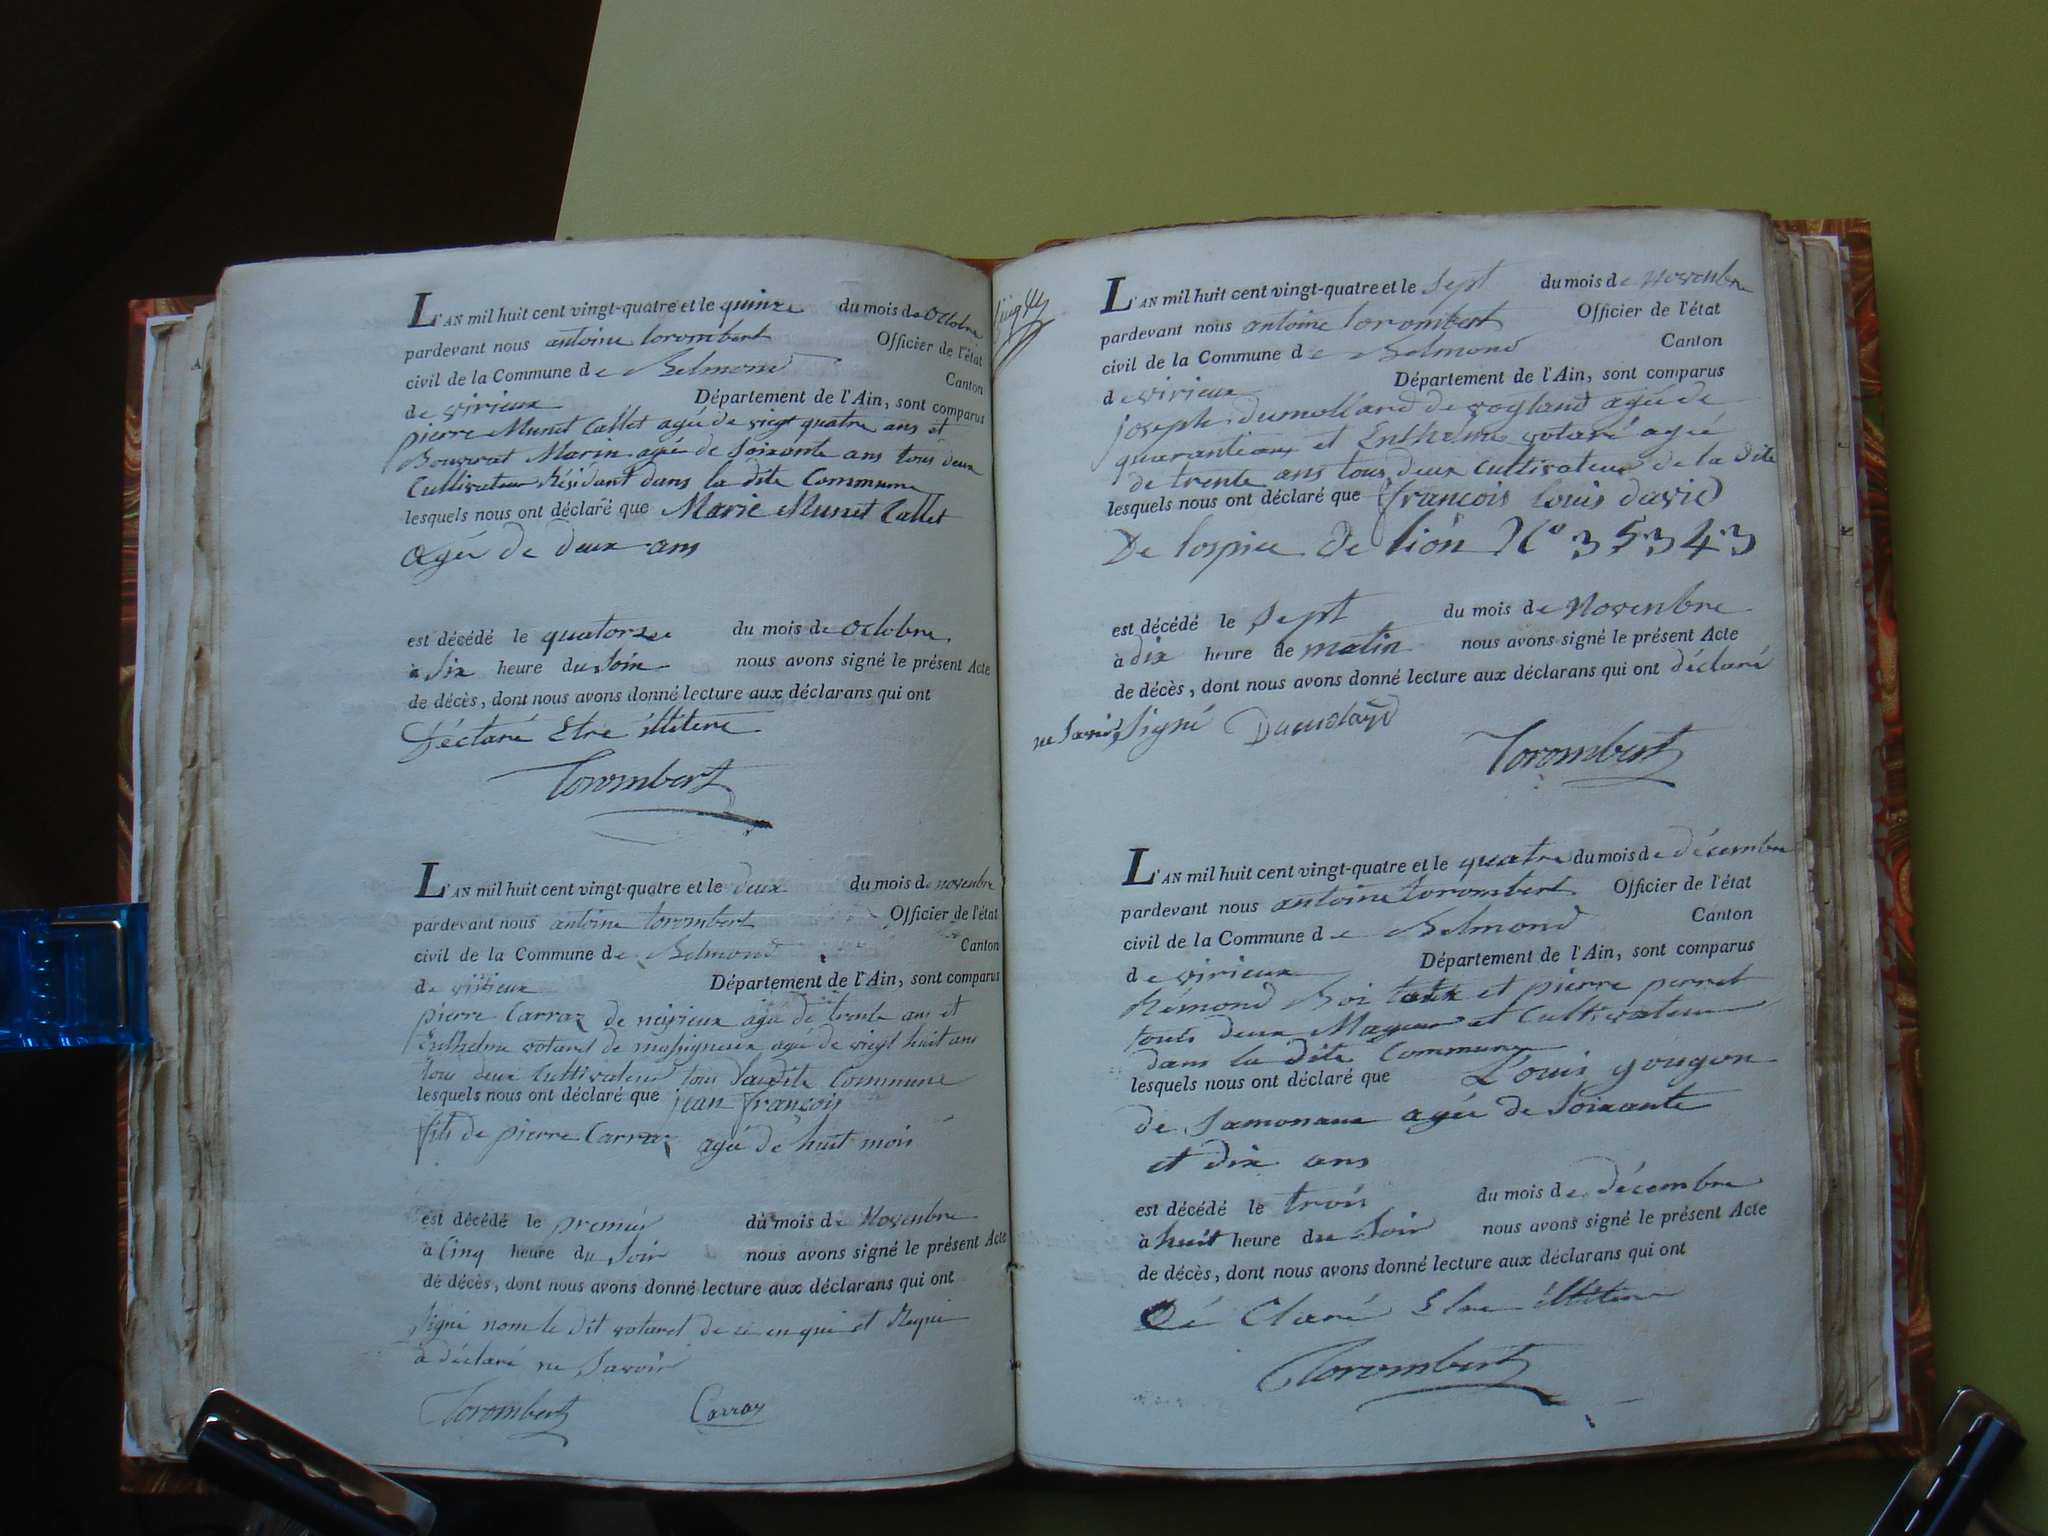 L'AN mil huit cent vingt-quatre et le quinze du mois de Octobre
pardevant nous antoine torombert Officier de l'état
civil de la Commune de Belmond Canton
de virieux Département de l'Ain, sont comparus
pierre Munet Callet agée de vingt quatre ans et
Bouvrat Marin agée de Soixante ans tous deux
Cultivateur Résidant dans la dite Commune
lesquels nous ont déclaré que Marie Munet Callet
agée de deux ans
est décédé le quatorze du mois de Octobre.
à Six heure du Soir nous avons signé le présent Acte
de décès, dont nous avons donné lecture aux déclarans qui ont
Déctaré Etre illitere
Torombert
L'AN mil huit cent vingt-quatre et le deux du mois de novenbre
pardevant nous antoine torombert Officier de l'état
civil de la Commune de Belmond Canton
de virieux Département de l'Ain, sont comparus
pierre Carraz de neirieux agée de trente ans et
Enthelme votard de massigneux agée de vingt huit ans
tous deux Cultivateur tous Commune
lesquels nous ont déclaré que jean françois
fils de pierre Carraz agée de huit mois
est décédé le premier du mois de Novenbre
à Cinq heure du Soir nous avons signé le présent Acte
de décès, dont nous avons donné lecture aux déclarans qui ont
Signé nom le dit votard de ce
a déclaré ne Savoir
Torombert Carraz
L'AN mil huit cent vingt-quatre et le Sept du mois de Novenbre
pardevant nous antoine torombert Officier de l'état
civil de la Commune de Belmond Canton
de virieux Département de l'Ain, sont comparus
joseph dumollard de vogland agée de
et Enthelme votard agée
de trente ans tous deux Cultivateur de la Dite
lesquels nous ont déclaré que françois louis david
De lospice De lion N° 35343
est décédé le Sept du mois de Novenbre
à dix heure de matin nous avons signé le présent Acte
de décès, dont nous avons donné lecture aux déclarans qui ont déclaré
ne Signé
Torombert
L'AN mil huit cent vingt-quatre et le quatre du mois de décembre
pardevant nous antoine torombert Officier de l'état
civil de la Commune de Belmond Canton
de virieux Département de l'Ain, sont comparus
Rémond et pierre perret
touts deux Mageur et Cultivateur
dans la dite Commune
lesquels nous ont déclaré que Louis gougon
de Samonaux agée de Soixante
et dix ans
est décédé le trois du mois de décembre
à huit heure du Soir nous avons signé le présent Acte
de décès, dont nous avons donné lecture aux déclarans qui ont
Dé Claré Etre illitere
Torombert